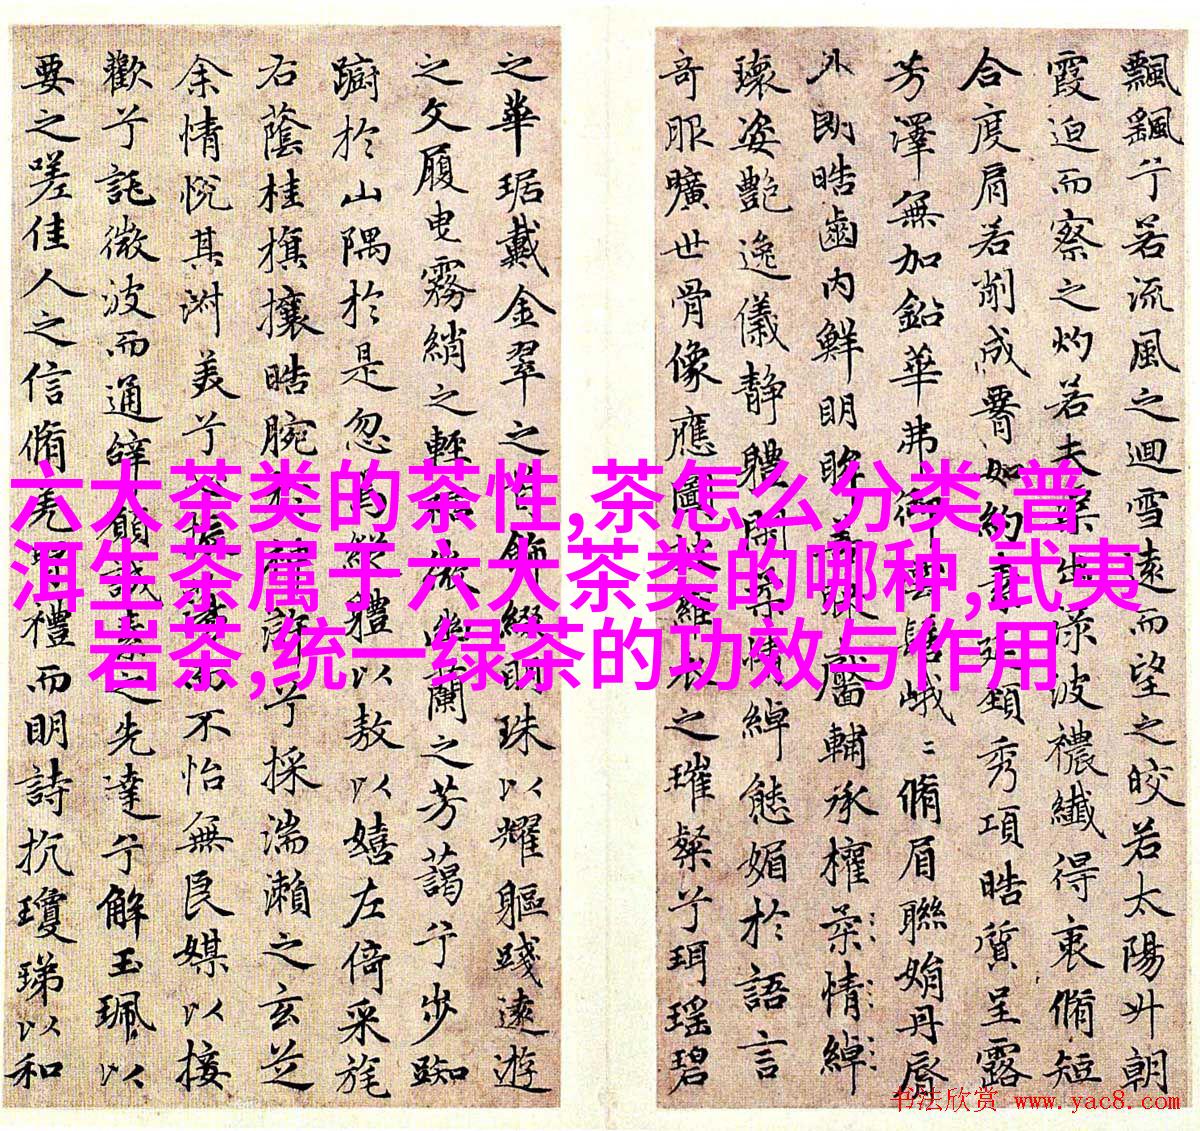 飄飖兮若流風之迴雪遠而望之皎若太陽升朝
霞迫而察之灼若夫蕖出渌波襛纖得衷脩短
合度肩若削成腰如約素延頸秀項皓質呈露
芳澤無加鉛華弗御雲髻峨〻脩眉聯娟丹脣
外朗皓齒內鮮明眸善睞靨輔承權柔情綽
瓌姿艷逸儀静體閑柔情綽態媚於語言
奇服曠世骨像應圖披羅衣之璀粲兮珥瑶碧
之華琚戴金翠之首飾綴明珠以耀軀踐遠遊
之文履曳霧綃之輕裾微幽蘭之芳藹兮步踟
躕於山隅於是忽焉縱體以敖以嬉左倚采旄
右蔭桂旗攘皓腕於神滸兮採湍瀨之玄芝
余情悅其淑美兮心振蕩而不怡無良媒以接
歡兮託微波而通辭願誠素之先達兮解玉珮以
要之嗟佳人之信脩羌習禮而明詩抗瓊珶以和
六大茶类的茶性,茶怎么分类,普
洱生茶属于六大茶类的哪种,武夷
岩茶,统一绿茶的功效与作用
书法欣赏 www.yac8.com